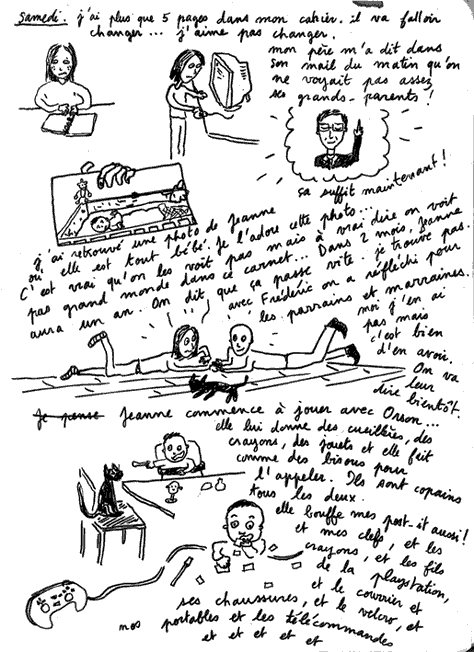 samedi. j'ai plus que 5 pages dans mon cahier. il va falloir
changer... j'aime pas changer.
mon père m'a dit dans
son mail du matin qu'on
ne voyait pas assez
ses grands-parents !
sa suffit maintenant !
j'ai retrouvé une photo de Jeanne
où elle est tout bébé. Je l'adore cette photo...
C'est vrai qu'on les voit pas mais à vrai dire on voit
pas grand monde dans ce carnet... Dans 2 mois, Jeanne
aura un an. On dit que ça passe vite. je trouve pas.
avec Frédéric on a réfléchi pour
les parrains et marraines.
moi j'en ai
pas mais
c'est bien
d'en avoir.
On va
leur
dire bientôt.
Je pense Jeanne commence à jouer avec Orson...
elle lui donne des cueillères, des
crayons, des jouets et elle fait
comme des bisous pour
l'appeler. Ils sont copains
tous les deux.
elle bouffe mes post-it aussi !
et mes clefs, et les
crayons, et les fils
de la playstation,
et le courrier et
ses chaussures, et le velcro, et
mes portables et les télécommandes
et et et et et